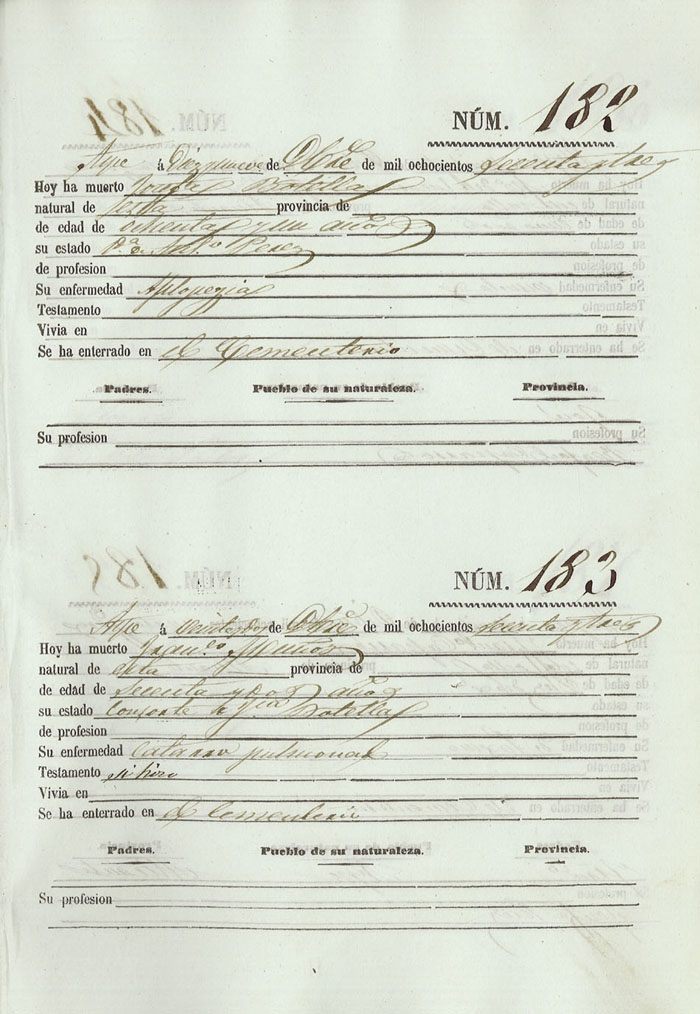 NÚM. 182
Aspe á Diez y nueve de Dbre de mil ochocientos sesenta y tres
Hoy ha muerto Botella
natural de esta provincia de
de edad de ochenta y un años
su estado Perez
de profesion
Su enfermedad Aplopegia
Testamento
Vivia en
Se ha enterrado en el Cementerio
Padres. Pueblo de su naturaleza. Provincia.
Su profesion
NÚM. 183
Aspe á de Dbre de mil ochocientos sesenta y tres
Hoy ha muerto Franco. Muñoz
natural de esta provincia de
de edad de sesenta y dos años
su estado Consorte Botella
de profesion
Su enfermedad catarro pulmonal
Testamento si hizo
Vivia en
Se ha enterrado en el Cementerio
Padres. Pueblo de su naturaleza. Provincia.
Su profesion